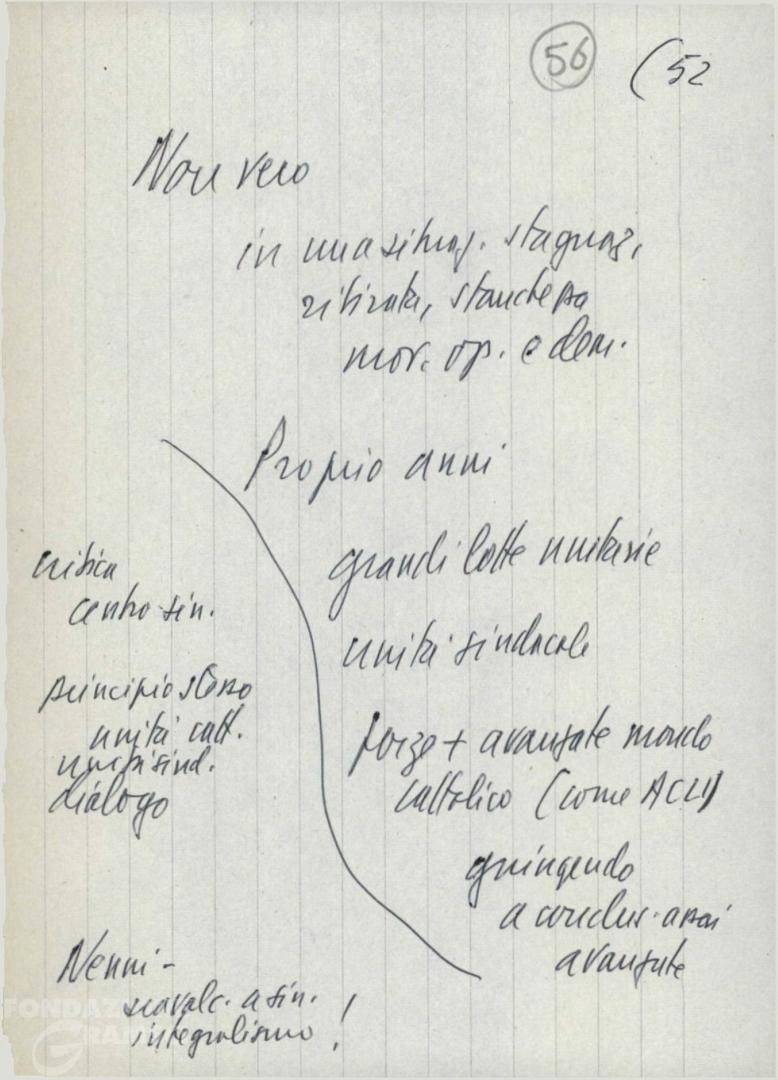 56 (52
Non vero
in una situaz. stagnaz.,
ritirata, stanchezza
mov. op. e dem.
Proprio anni
grandi lotte unitarie
unità sindacale
forze + avanzate mondo
cattolico (come ACLI)
giungendo
a conclus. assai
avanzate
critica
centro sin.
principio stesso
unità catt.
unità sind.
dialogo
Nenni -
scavalc. a sin.
integralismo !
FONDAZI
GRA